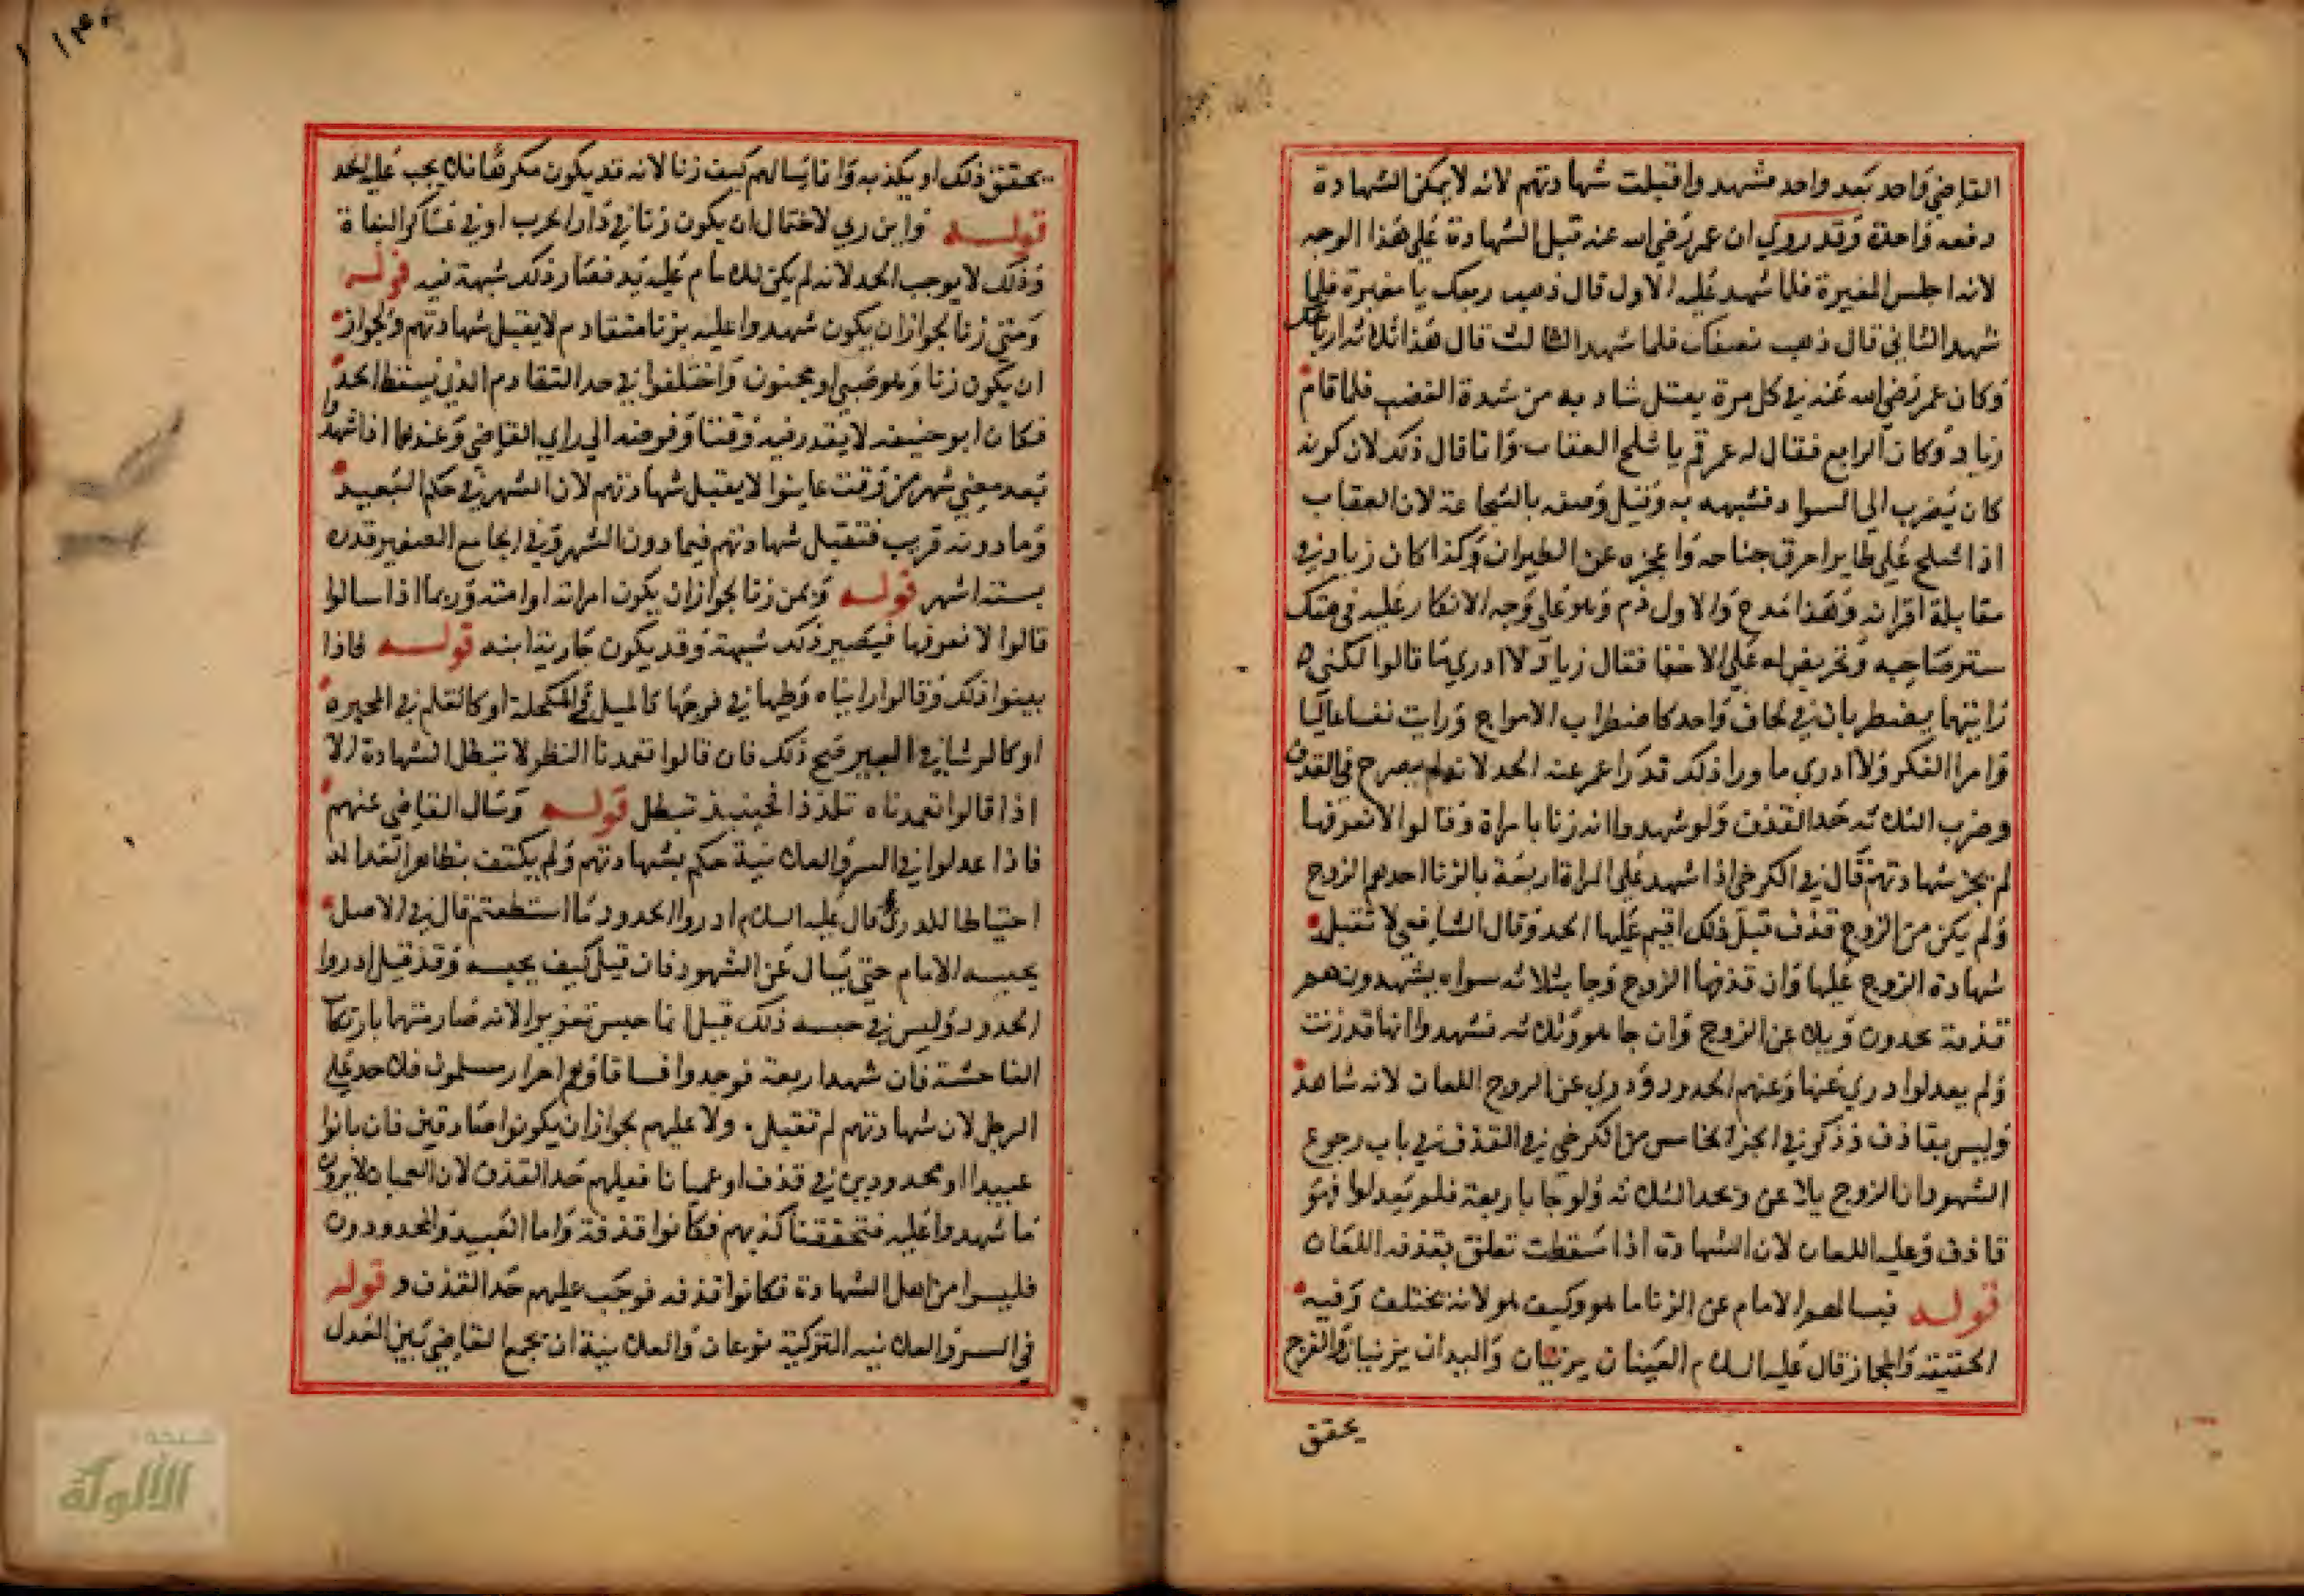 القاضي واحد بعد واحد فشهدوا قبلت شهادتهم لانه لا يمكن الشهادة
دفعه واحدة وقد روي ان عمر رضي الله عنه قبل الشهادة علي هذا الوجه
لانه اجلس المغيرة فلما شهد عليه الاول قال ذهب ربعك يا مغيرة فلما
شهد الثاني قال ذهب نصفك فلما شهد الثالث قال هذا ثلاثه ارباعك
وكان عمر رضي الله عنه في كل مرة يفتل شاربه من شدة الغضب فلما قام
زياد وكان الرابع فقال له عمر قم يا شلح العقاب وانما قال ذلك لان كونه
كان يضرب الي السواد فشبهه به وقيل وصفه بالشجاعة لان العقاب
اذا شلح علي طاير احرق جناحه واعجزه عن الطيران وكذا كان زياد في
مقابلة اقرانه وهذا مدح والاول ذم وهو علي وجه الانكار عليه في هتك
ستر صاحبه وتحريض له علي الاخفا فقال زياد لا ادري ما قالوا لكني
رايتهما يضطربان في لحاف واحد كاضطراب الامواج ورايت نفسا عاليا
وامرا الفكر ولا ادري ما ورا ذلك قدرا عمر عنه الحد لانه لم يصرح في القذف
وضرب الثلاثه حد القذف ولو شهدوا انه زنا بامراة وقالوا لا نعرفها
لم يجز شهادتهم قال في الكرخي اذا شهد علي المراة اربعة بالزنا احدهم الزوج
ولم يكن من الزوج قذف قبل ذلك اقيم عليها الحد وقال الشافعي لا تقبل
شهادة الزوج عليها وان قذفها الزوج وجا بثلاثه سواه يشهدون هم
قذفة يحدون ويلاعن الزوج وان جا هو وثلاثه فشهدوا انها قد زنت
ولم يعدلوا دري عنها وعنهم الحدود ودري عن الزوج اللعان لانه شاهد
وليس بقاذف وذكر في الجز الخامس من الكرخي في القذف في باب رجوع
الشهود ان الزوج يلاعن ويحد الثلاثه ولو جا باربعة فلم يعدلوا فهو
قاذف وعليه اللعان لان الشهادة اذا سقطت تعلق بقذفه اللعان
قوله فيسالهم الامام عن الزنا ما هو وكيف هو لانه يختلف وفيه
الحقيقة والمجاز قال عليه السلام العينان يزنيان واليدان يزنيان والفرج
يحقق
يحقق ذلك او يكذبه وانما يسالهم كيف زنا لانه قد يكون مكرها فلا يجب عليه الحد
قوله واين زني لاحتمال ان يكون زنا في دار الحرب او في عساكر البغاة
وذلك لا يوجب الحد لانه لم يكن للامام عليه يد فصار ذلك شبهة فيه قوله
ومتي زنا لجواز ان يكون شهدوا عليه بزنا متقادم لا يقبل شهادتهم ولجواز
ان يكون زنا وهو صبي او مجنون واختلفوا في حد التقادم الذي يسقط الحد
فكان ابو حنيفه لا يقدر فيه وقتا وفوضه الي راي القاضي وعندهما اذا شهدوا
بعد مضي شهر من وقت عاينوا لا يقبل شهادتهم لان الشهر في حكم البعيد
وما دونه قريب فتقبل شهادتهم فيما دون الشهر وفي الجامع الصغير قدره
بستة اشهر قوله وبمن زنا لجواز ان يكون امراته او امته وربما اذا سالوا
قالوا لا نعرفها فيصير ذلك شبهة وقد يكون جارية ابنه قوله فاذا
بينوا ذلك وقالوا رايناه وطيها في فرجها كالميل في المكحلة او كالقلم في المحبرة
او كالرشا في البير صح ذلك فان قالوا تعمدنا النظر لا تبطل الشهادة الا
اذا قالوا تعمدناه تلذذا فحينيذ تبطل قوله وسال القاضي عنهم
فاذا عدلوا في السر والعلانية حكم بشهادتهم ولم يكتف بظاهر العدالة
احتياطا للدرء قال عليه السلام ادروا الحدود ما استطعتم قال في الاصل
يحبسه الامام حتي يسال عن الشهود فان قيل كيف يحبسه وقد قيل ادروا
الحدود وليس في حبسه ذلك قيل انما حبس تعزيرا لانه صار متهما بارتكاب
الفاحشة فان شهد اربعة فوجدوا فساقا وهم احرار مسلمون فلا حد علي
الرجل لان شهادتهم لم تقبل ولا عليهم لجواز ان يكونوا صادقين فان بانوا
عبيدا او محدودين في قذف او عميانا فعليهم حد القذف لان العميان لا يرون
ما شهدوا عليه فتحققنا كذبهم فكانوا قذفة واما العبيد والمحدودون
فليسوا من اهل الشهادة فكانوا قذفه فوجب عليهم حد القذف قوله
في السر والعلانيه التزكية نوعان والعلانية ان يجمع القاضي بين المعدل
الألوكة